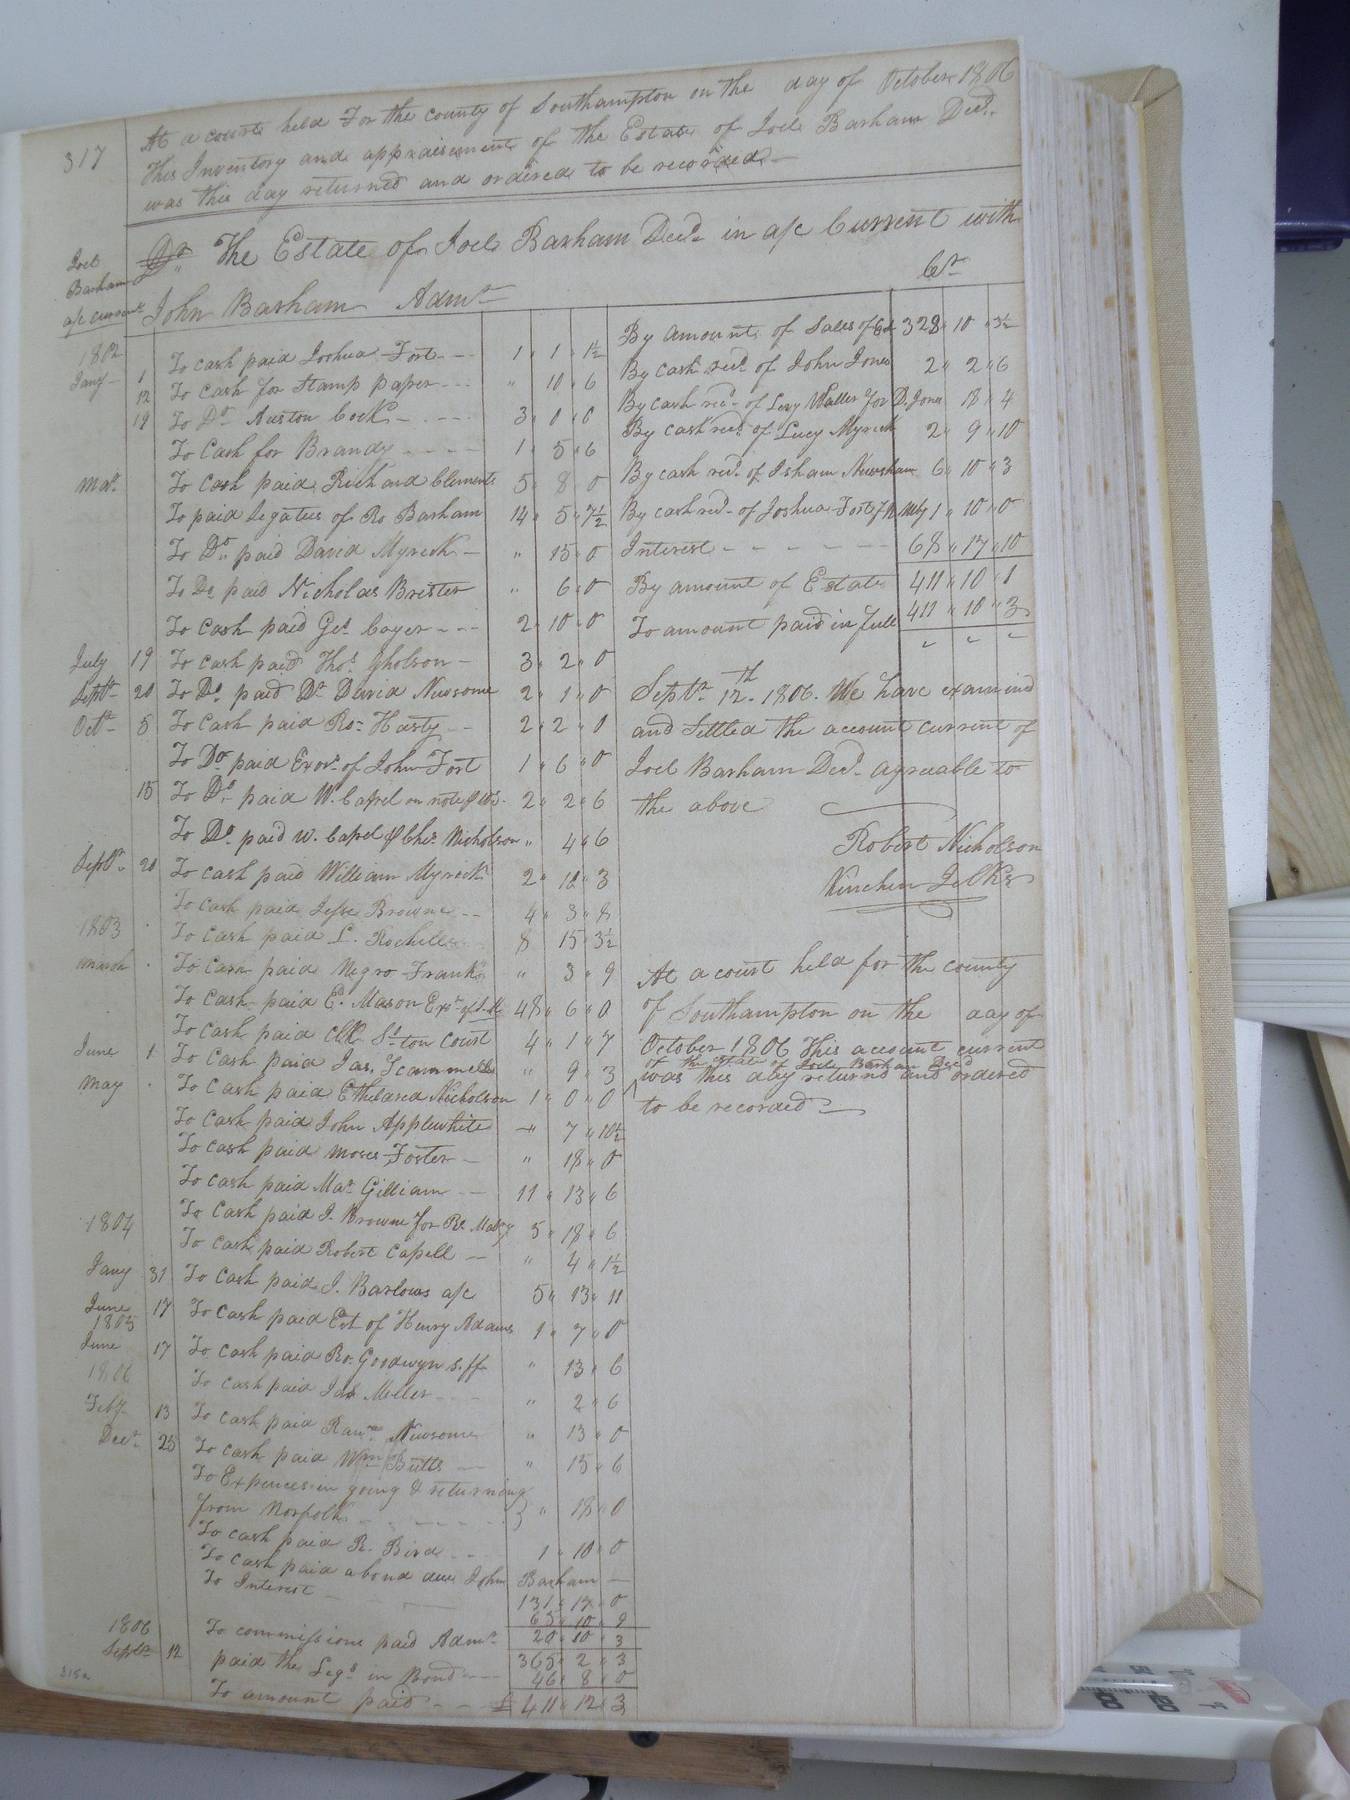 317
At a court held For the county of Southampton on the day of October 1806
This Inventory and appraisement of the Estate of Joel Barham Decd.
was this day returned and ordered to be recorded
Joel
Barham
a/c current
Dr The Estate of Joel Barham Decd. in a/c Current with
John Barham Admr
Cr
1802
Jany 1 To cash paid Joshua Fort 1 " 1 " 1½
12 To Cash for Stamp paper " 10 " 6
19 To Do Auston Cook 3 " 0 " 0
To Cash for Brandy 1 " 5 " 6
Mar. To Cash paid Richard Clements 5 " 8 " 0
To paid Legatees of Ro Barham 14 " 5 " 7½
To Do paid David Myrick " 15 " 0
To Do paid Nicholas Brister " 6 " 0
To Cash paid Geo. 2 " 10 " 0
July 19 To Cash paid Thos. Gholson 3 " 2 " 0
Septr 20 To Do. paid Dr David Newsome 2 " 1 " 0
Octr 5 To Cash paid Ro. Harty 2 " 2 " 0
To Do paid Exors. of John Fort 1 " 6 " 0
15 To Do paid W. Capel on note 2 " 2 " 6
To Do. paid W. Capel Nicholson " 4 " 6
Septr 20 To cash paid William Myrick 2 " 3
To Cash paid Jesse Browne 4 " 3 " 8
1803 To Cash paid L. Rochelle 8 15 " 3½
March To Cash paid Negro Frank " 3 " 9
To Cash paid E. Mason Exr. 48 " 6 " 0
To Cash paid Clk So.ton Court 4 " 1 " 7
June 1 To Cash paid Jas. Scammell " 9 " 3
May To Cash paid Etheldred Nicholson 1 " 0 " 0
To Cash paid John Applewhite " 7 " 10½
To Cash paid Moses Foster " 18 " 0
To Cash paid Mar. Gilliam 11 " 13 " 6
To Cash paid J. Browne for Ro. Mabry 5 " 18 " 6
1804 To Cash paid Robert Capell " 4 " 1½
Jany 31 To Cash paid J. Barlows a/c 5 " 13 " 11
June 17 To Cash paid Est of Henry Adams 1 " 7 " 0
1805
June 17 To Cash paid Ro. Goodwyn S.ff " 13 " 6
1806 To Cash paid Jas Meler " 2 " 6
Feby 13 To Cash paid Newsome " 13 " 0
Decr 25 To Cash paid Wm Butts " 15 " 6
To Expences in going & returning
from Norfolk " 18 " 0
To Cash paid R. Bird 1 " 10 " 0
To Cash paid a bond due John Barham
131 " 17 " 0
To Interest 65 " 10 " 9
To commissions paid Admr 20 " 10 " 3
1806 365 " 2 " 3
Septr 12 paid the Legs in Bond 46 " 8 " 0
To amount paid £ 411 " 12 " 3
By amount of Sales of Est 328 " 10 " 3½
By Cash recd. of John Jones 2 " 2 " 6
By Cash recd. of Levy Waller for D. Jones 18 " 4
By Cash recd. of Lucy Myrick 2 " 9 " 10
By Cash recd. of Isham Newsham 6 " 10 " 3
By Cash recd. of Joshua Fort 1 " 10 " 0
Interest 68 " 17 " 10
By amount of Estate 411 " 10 " 1
To amount paid in full 411 " 10 " 3
Septr. 12th 1806. We have examined
and Settled the account current of
Joel Barham Decd. agreable to
the above
Robert Nicholson
Kinchen Jelks
At a court held for the county
of Southampton on the day of
October 1806 This account current
of the estate of Joel Barham Decd
was this day returned and ordered
to be recorded